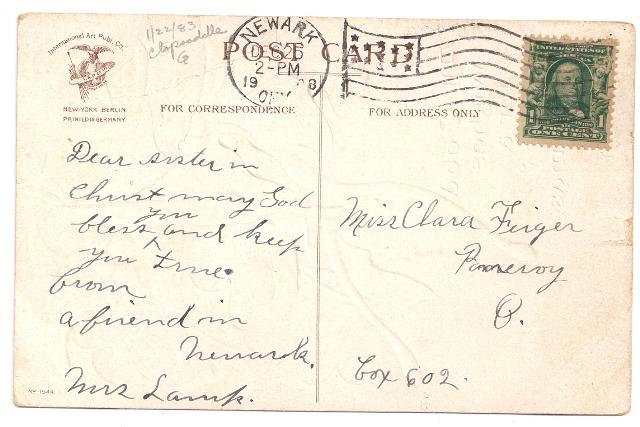 International Art Publ. Co.
NEW-YORK BERLIN
PRINTED IN GERMANY
1/22/83
POST CARD
NEWARK
2-PM
19 08
OHIO
UNITED STATES OF
POSTAGE
1 ONE CENT 1
FOR CORRESPONDENCE
FOR ADDRESS ONLY
Dear sister in
Christ may God
you
bless ^ and keep
you true.
from
a friend in
Newark.
Mrs Lamp.
Miss Clara Feiger
Pomeroy
O.
Box 602.
No 1944